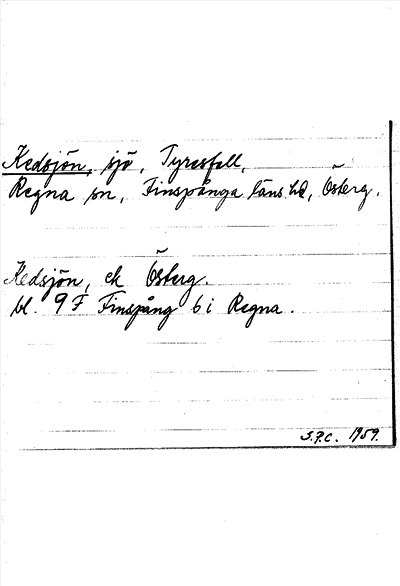 Kedsjön, sjö, Tyresfall,
Regna sn, Finspånga läns hd, Österg.
Kedsjön, ek Österg.
bl. 9F Finspång 6 i Regna.
1959.